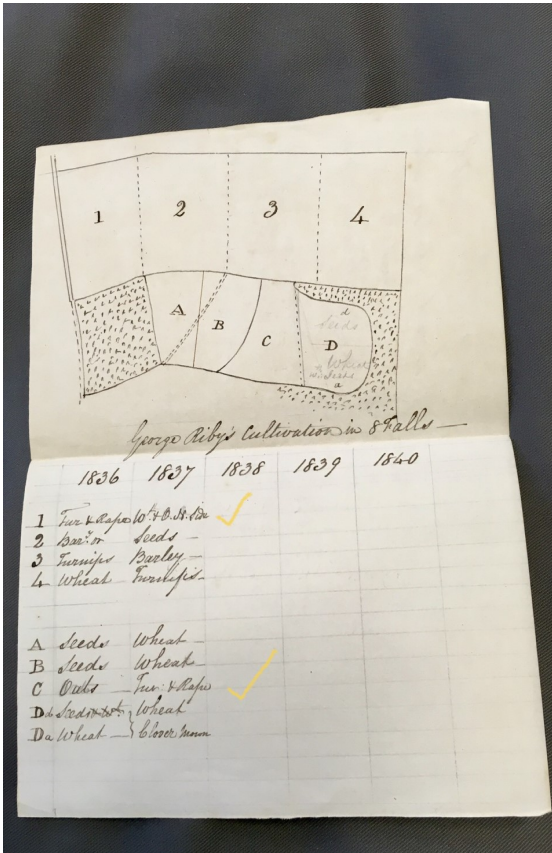 1 2 3 4
A B C D
d
Seeds
Wheat
a
George Riby's Cultivation in 8 Falls
1836 1837 1838 1839 1840
1 Tur & Rape Wt. & O. N. Side
2 Bar. or Seeds
3 Turnips Barley
4 Wheat Turnips
A Seeds Wheat
B Seeds Wheat
C Oats Tur: & Rape
D d Wheat
D a Wheat Clover